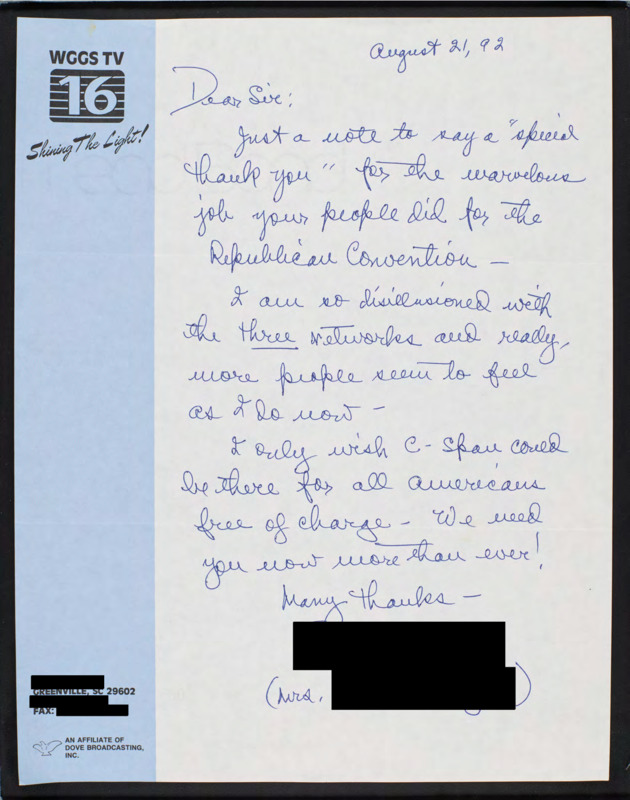 WGGS TV
16
Shining The Light!
August 21, 92
Dear Sir:
Just a note to say a "special
thank you" for the marvelous
job your people did for the
Republican Convention —
I am so disillusioned with
the three networks and really,
more people seem to feel
as I do now —
I only wish C-Span could
be there for all Americans
free of charge — We need
you now more than ever!
Many thanks —
(Mrs.
GREENVILLE, SC 29602
FAX:
AN AFFILIATE OF
DOVE BROADCASTING,
INC.